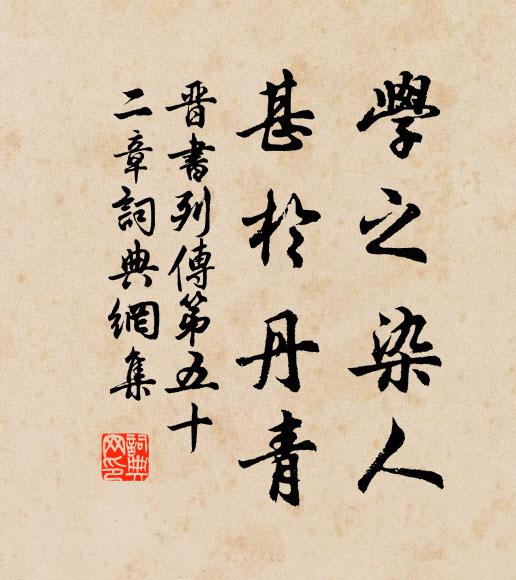 學之染人
甚於丹青
晋書列傳第五十
二章詞典網集
詞典
网印